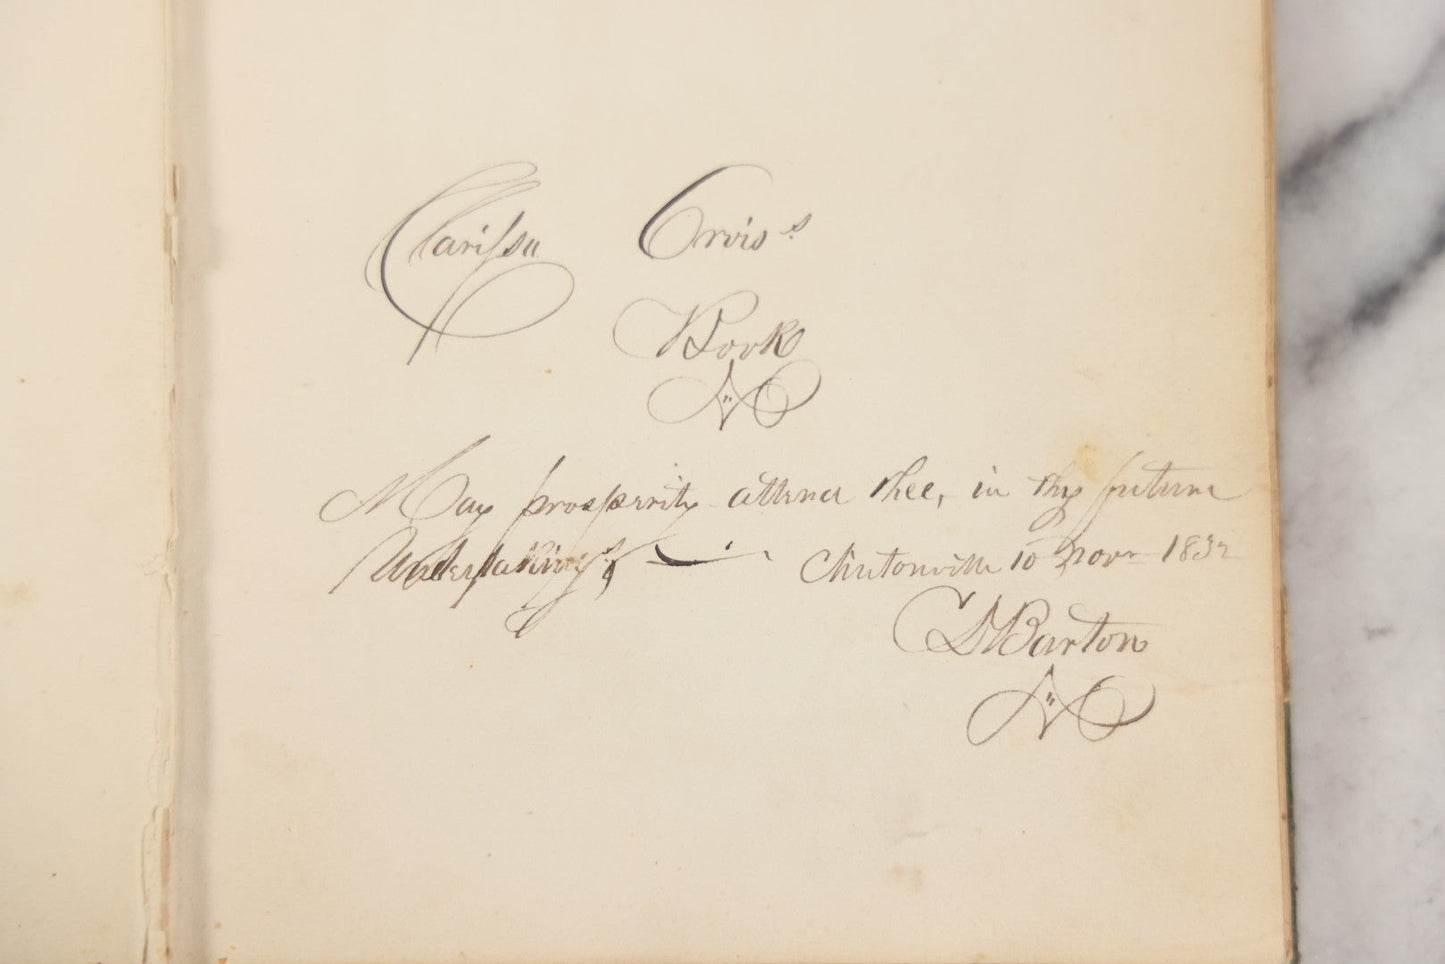 Clarissa Orvis's
Book
May prosperity attend thee, in thy future
Undertakings, Clintonville 10 Novr 1832
Barton